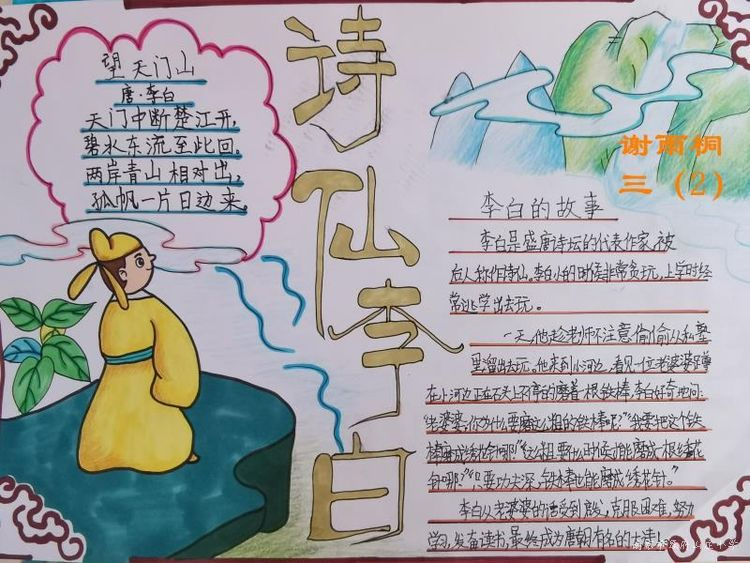 望天门山
唐·李白
天门中断楚江开,
碧水东流至此回。
两岸青山相对出,
孤帆一片日边来。
诗仙李白
谢雨桐
三（2）
李白的故事
李白是盛唐诗坛的代表作家,被
后人称作诗仙。李白小的时候非常贪玩,上学时经
常逃学出去玩。
一天,他趁老师不注意偷偷从私塾
里溜出去玩。他来到小河边,看见一位老婆婆蹲
在小河边正在石头上不停的磨着一根铁棒,李白好奇地问:
"老婆婆,你为什么要磨这么粗的铁棒呢?""我要把这个铁
棒磨成绣花针哪!""这么粗要什么时候才能磨成一根绣花
针哪?""只要功夫深,铁棒也能磨成绣花针。"
李白从老婆婆的话受到启发,克服困难,努力
学习,发奋读书,最终成为唐朝有名的大诗人